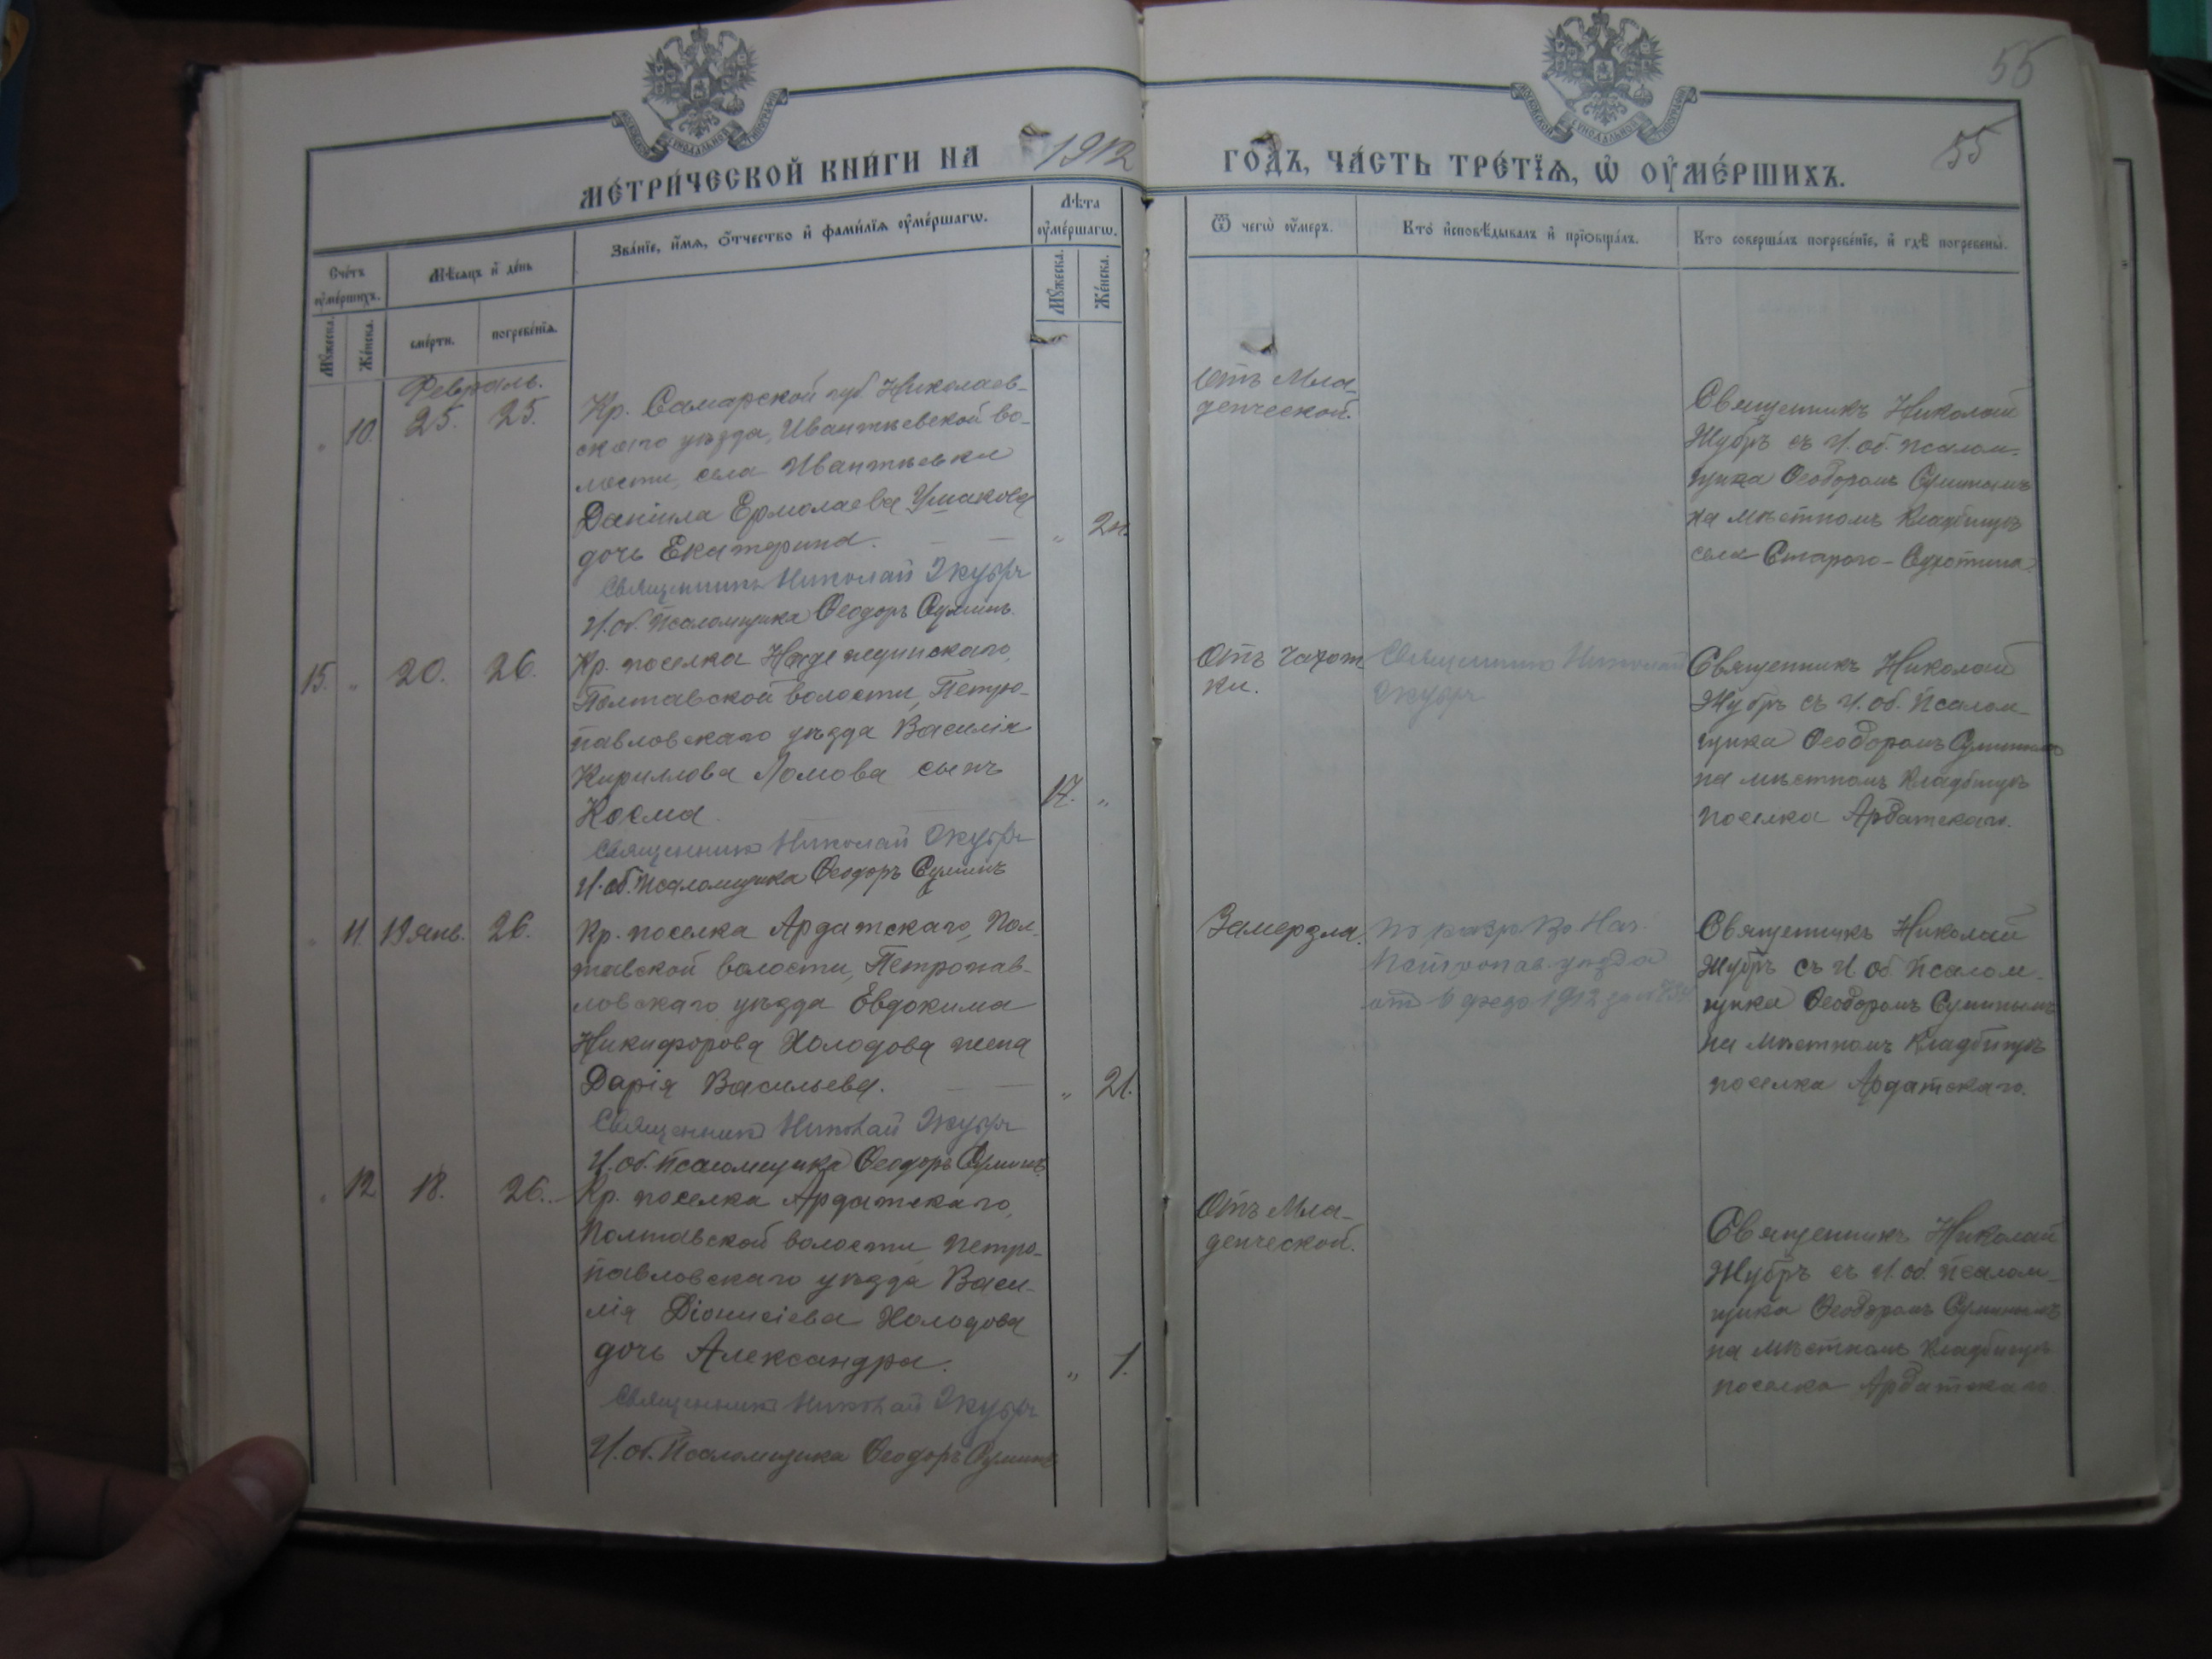 55
МОСКОВСКОЙ СѴНОДАЛЬНОЙ ТИПОГРАФІИ
МОСКОВСКОЙ СѴНОДАЛЬНОЙ ТИПОГРАФІИ
МЕ́ТРИ́ЧЕСКОЙ КНИ́ГИ НА 1912 ГО́ДЪ, ЧА́СТЬ ТРЕ́ТЇѦ, Ѡ҆ ОУ҆МЕ́РШИХЪ.
55
Сче́тъ оу҆ме́ршихъ.
Мѣ́сяцъ и҆ де́нь
Зва́нїе, и҆́мѧ, ѻ҆́тчество и҆ фами́лїѧ оу҆ме́ршагѡ.
Лѣ́та оу҆ме́ршагѡ.
Ѿ чегѡ̀ оу҆́меръ.
Кто̀ и҆сповѣ́дывалъ и҆ прїѻбща́лъ.
Кто̀ соверша́лъ погребе́нїе, и҆ гдѣ̀ погребены̀.
Мꙋ́жеска.
Же́нска.
сме́рти.
погребе́нїѧ.
Мꙋ́жеска.
Же́нска.
Февраль.
" 10. 25. 25.
Кр. Самарской губ. Николаев-
скаго уѣзда, Ивантѣевской во-
лости, села Ивантѣевки
Даніила Ермолаева Ушакова
дочь Екатерина. " 2н.
Священникъ Николай Жубръ
И. об. псаломщика Ѳеодоръ Суминъ.
Отъ Мла-
денческой.
Священникъ Николай
Жубръ съ И. об. псалом-
щика Ѳеодоромъ Суминымъ
на мѣстномъ кладбищѣ
села Стараго-
15. " 20. 26.
Кр. поселка Надеждинскаго,
Полтавской волости, Петро-
павловскаго уѣзда Василія
Кириллова Ломова сынъ
Косма. 17. "
Священникъ Николай Жубръ
И. об. псаломщика Ѳеодоръ Суминъ
Отъ чахот
ки.
Священникъ Николай
Жубръ
Священникъ Николай
Жубръ съ И. об. псалом-
щика Ѳеодоромъ Суминымъ
на мѣстномъ кладбищѣ
поселка Ардатскаго.
" 11. 19 янв. 26.
Кр. поселка Ардатскаго, Пол-
тавской волости, Петропав-
ловскаго уѣзда Евдокима
Никифорова Холодова жена
Дарія Васильева. " 21.
Священникъ Николай Жубръ
И. об. псаломщика Ѳеодоръ Суминъ.
Замерзла.
По Нач.
Петропав. уѣзда
1912 за №
Священникъ Николай
Жубръ съ И об псалом-
щика Ѳеодоромъ Суминымъ
на мѣстномъ кладбищѣ
поселка Ардатскаго.
" 12 18. 26.
Кр. поселка Ардатскаго,
Полтавской волости Петро-
павловскаго уѣзда Васи-
лія Діонисіева Холодова
дочь Александра. " 1.
Священникъ Николай Жубръ
И. об. Псаломщика Ѳеодоръ Суминъ
Отъ Мла-
денческой.
Священникъ Николай
Жубръ съ И. об. псалом-
щика Ѳеодоромъ Суминымъ
на мѣстномъ кладбищѣ
поселка Ардатскаго